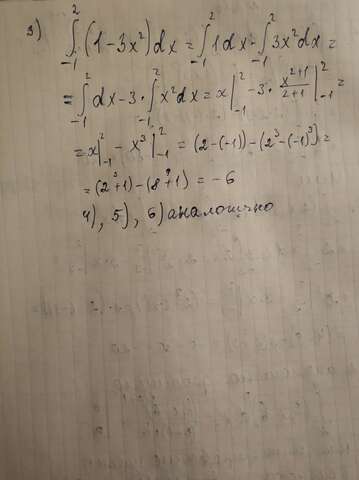 3) ∫₋₁² (1-3x²)dx = ∫₋₁² 1dx - ∫₋₁² 3x²dx =
= ∫₋₁² dx - 3 · ∫₋₁² x²dx = x|₋₁² - 3 · x²⁺¹/2+1 |₋₁² =
= x|₋₁² - x³|₋₁² = (2-(-1)) - (2³-(-1)³) =
= (2+1) - (8+1) = -6
4), 5), 6) аналогично